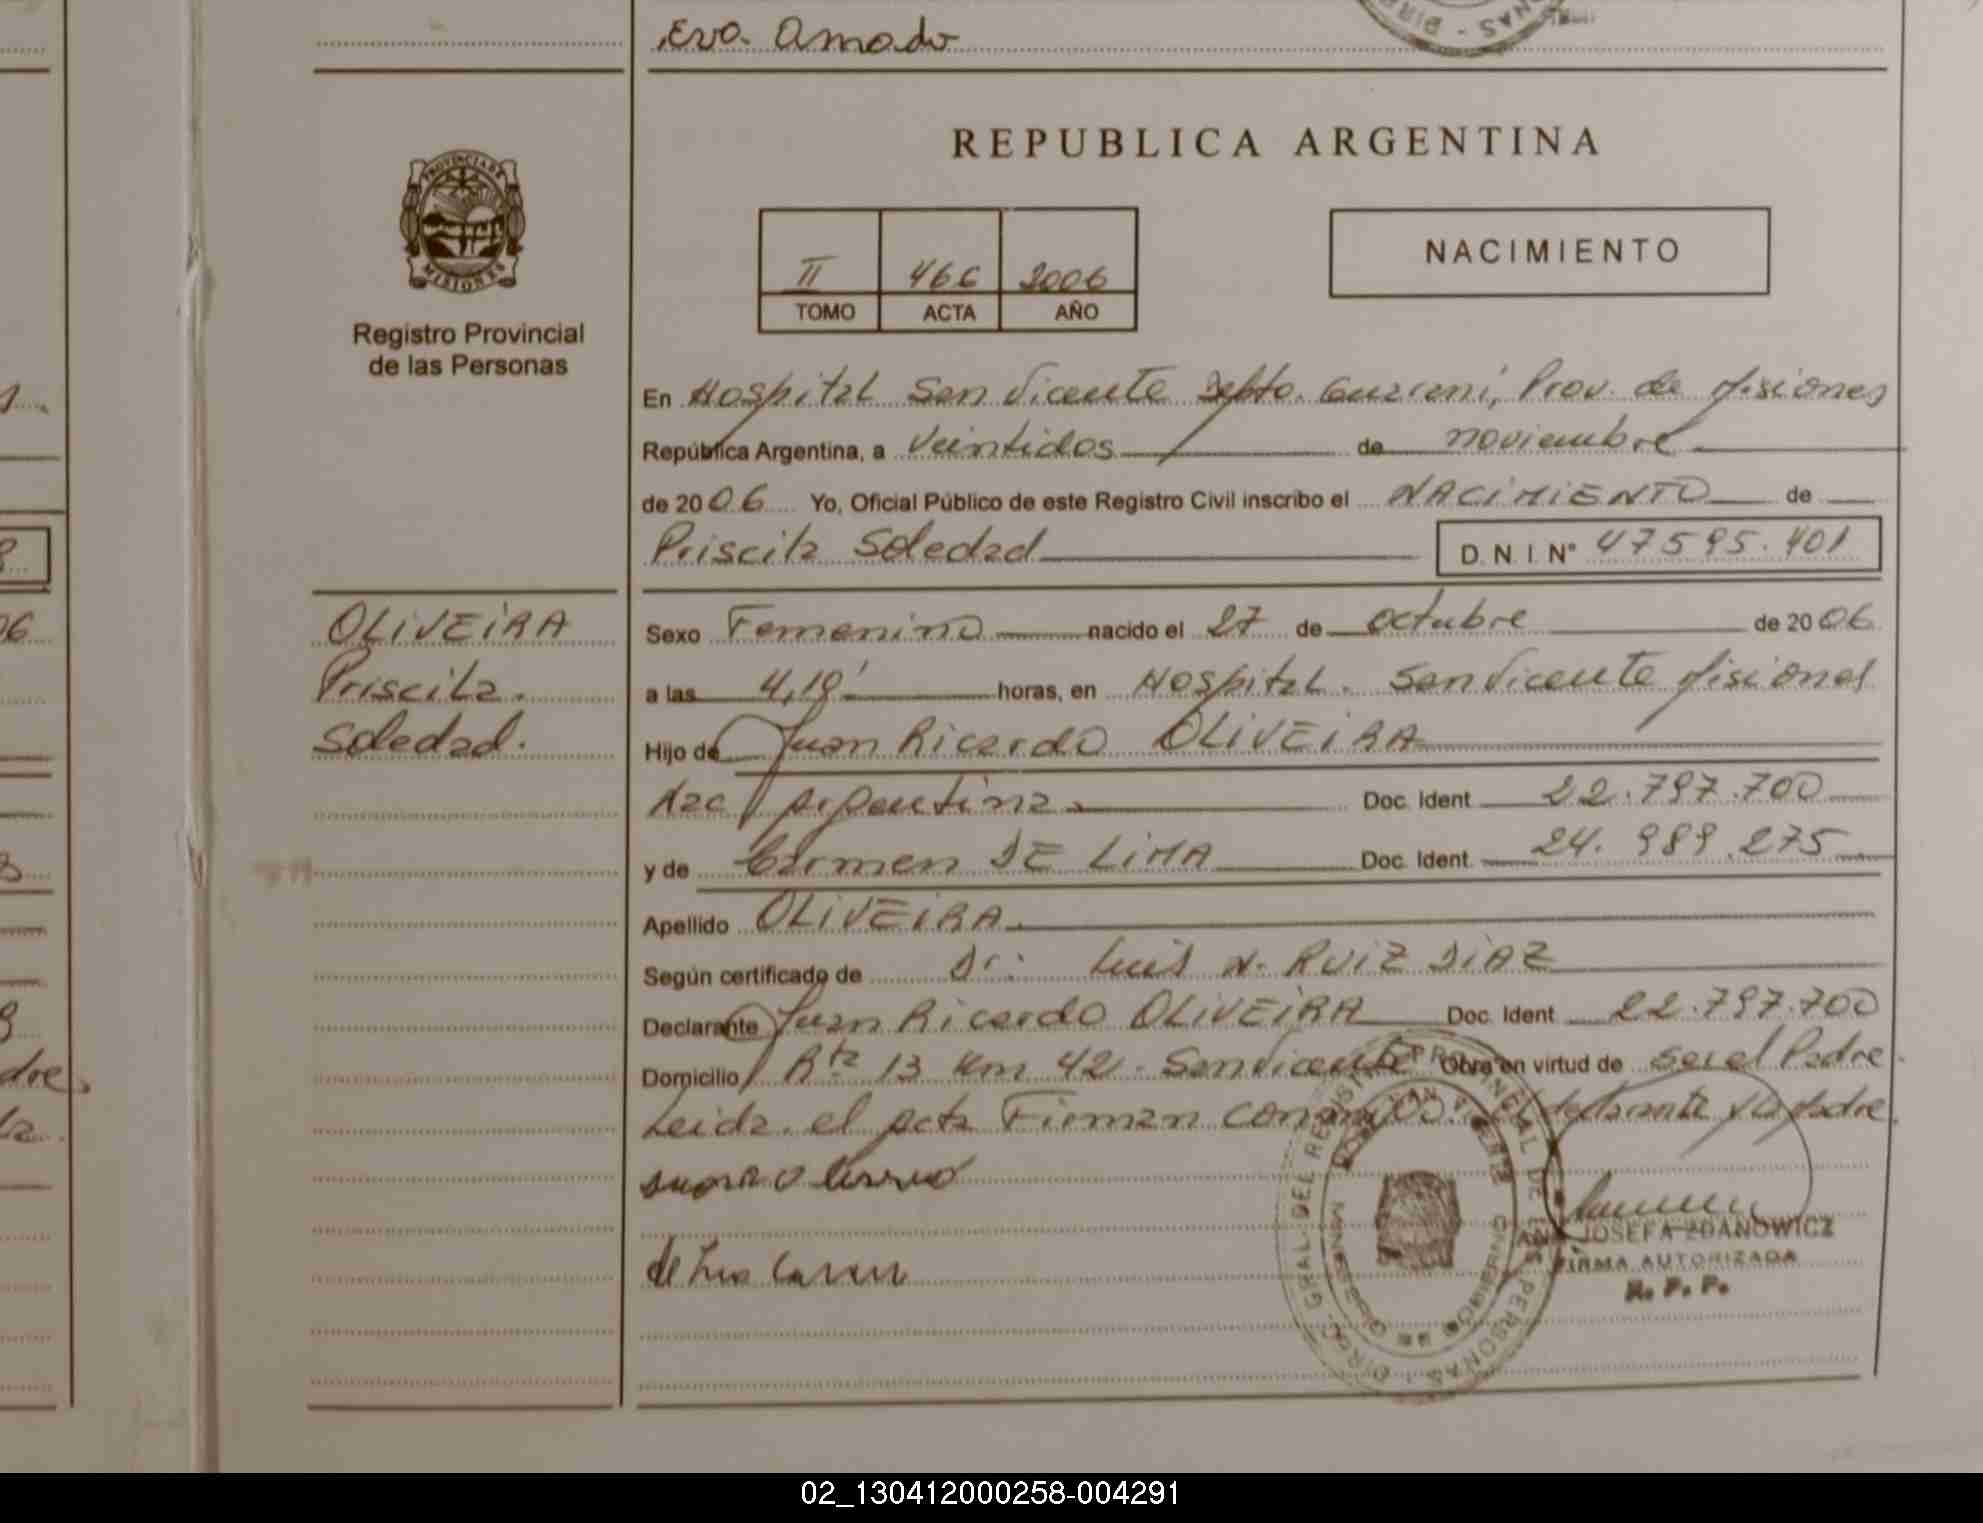 Eva. Amado
REPUBLICA ARGENTINA
PROVINCIA DE
MISIONES
Registro Provincial
de las Personas
II 466 2006
TOMO ACTA AÑO
NACIMIENTO
En Hospital San Vicente Depto. Guaraní, Prov. de Misiones
República Argentina, a Veintidos de noviembre
de 2006 Yo, Oficial Público de este Registro Civil inscribo el NACIMIENTO de
Priscila Soledad D. N. I. Nº 47595.401
OLIVEIRA
Priscila.
Soledad.
Sexo Femenino nacido el 27 de octubre de 2006
a las 4,10' horas, en Hospital. San Vicente Misiones
Hijo de Juan Ricardo OLIVEIRA
Nac Argentina. Doc. Ident 22.797.700
y de Carmen DE LIMA Doc. Ident. 24.989.275
Apellido OLIVEIRA.
Según certificado de Dr: Luis N. RUIZ DIAZ
Declarante Juan Ricardo OLIVEIRA Doc. Ident 22.797.700
Domicilio Rta 13 Km 42. San Vicente Obra en virtud de ser el Padre.
Leida. el acta Firman conmigo. el declarante y la padre.
JOSEFA ZDANOWICZ
FIRMA AUTORIZADA
R. P. P.
02_130412000258-004291